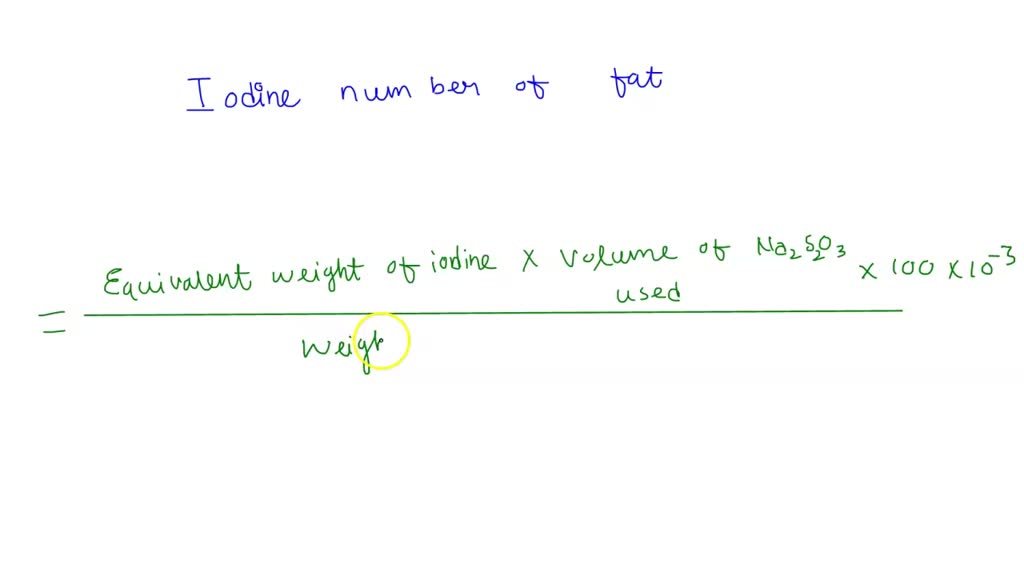 Iodine number of fat
= Equivalent weight of iodine × volume of Na₂S₂O₃ × 100 × 10⁻³
used
Weigh